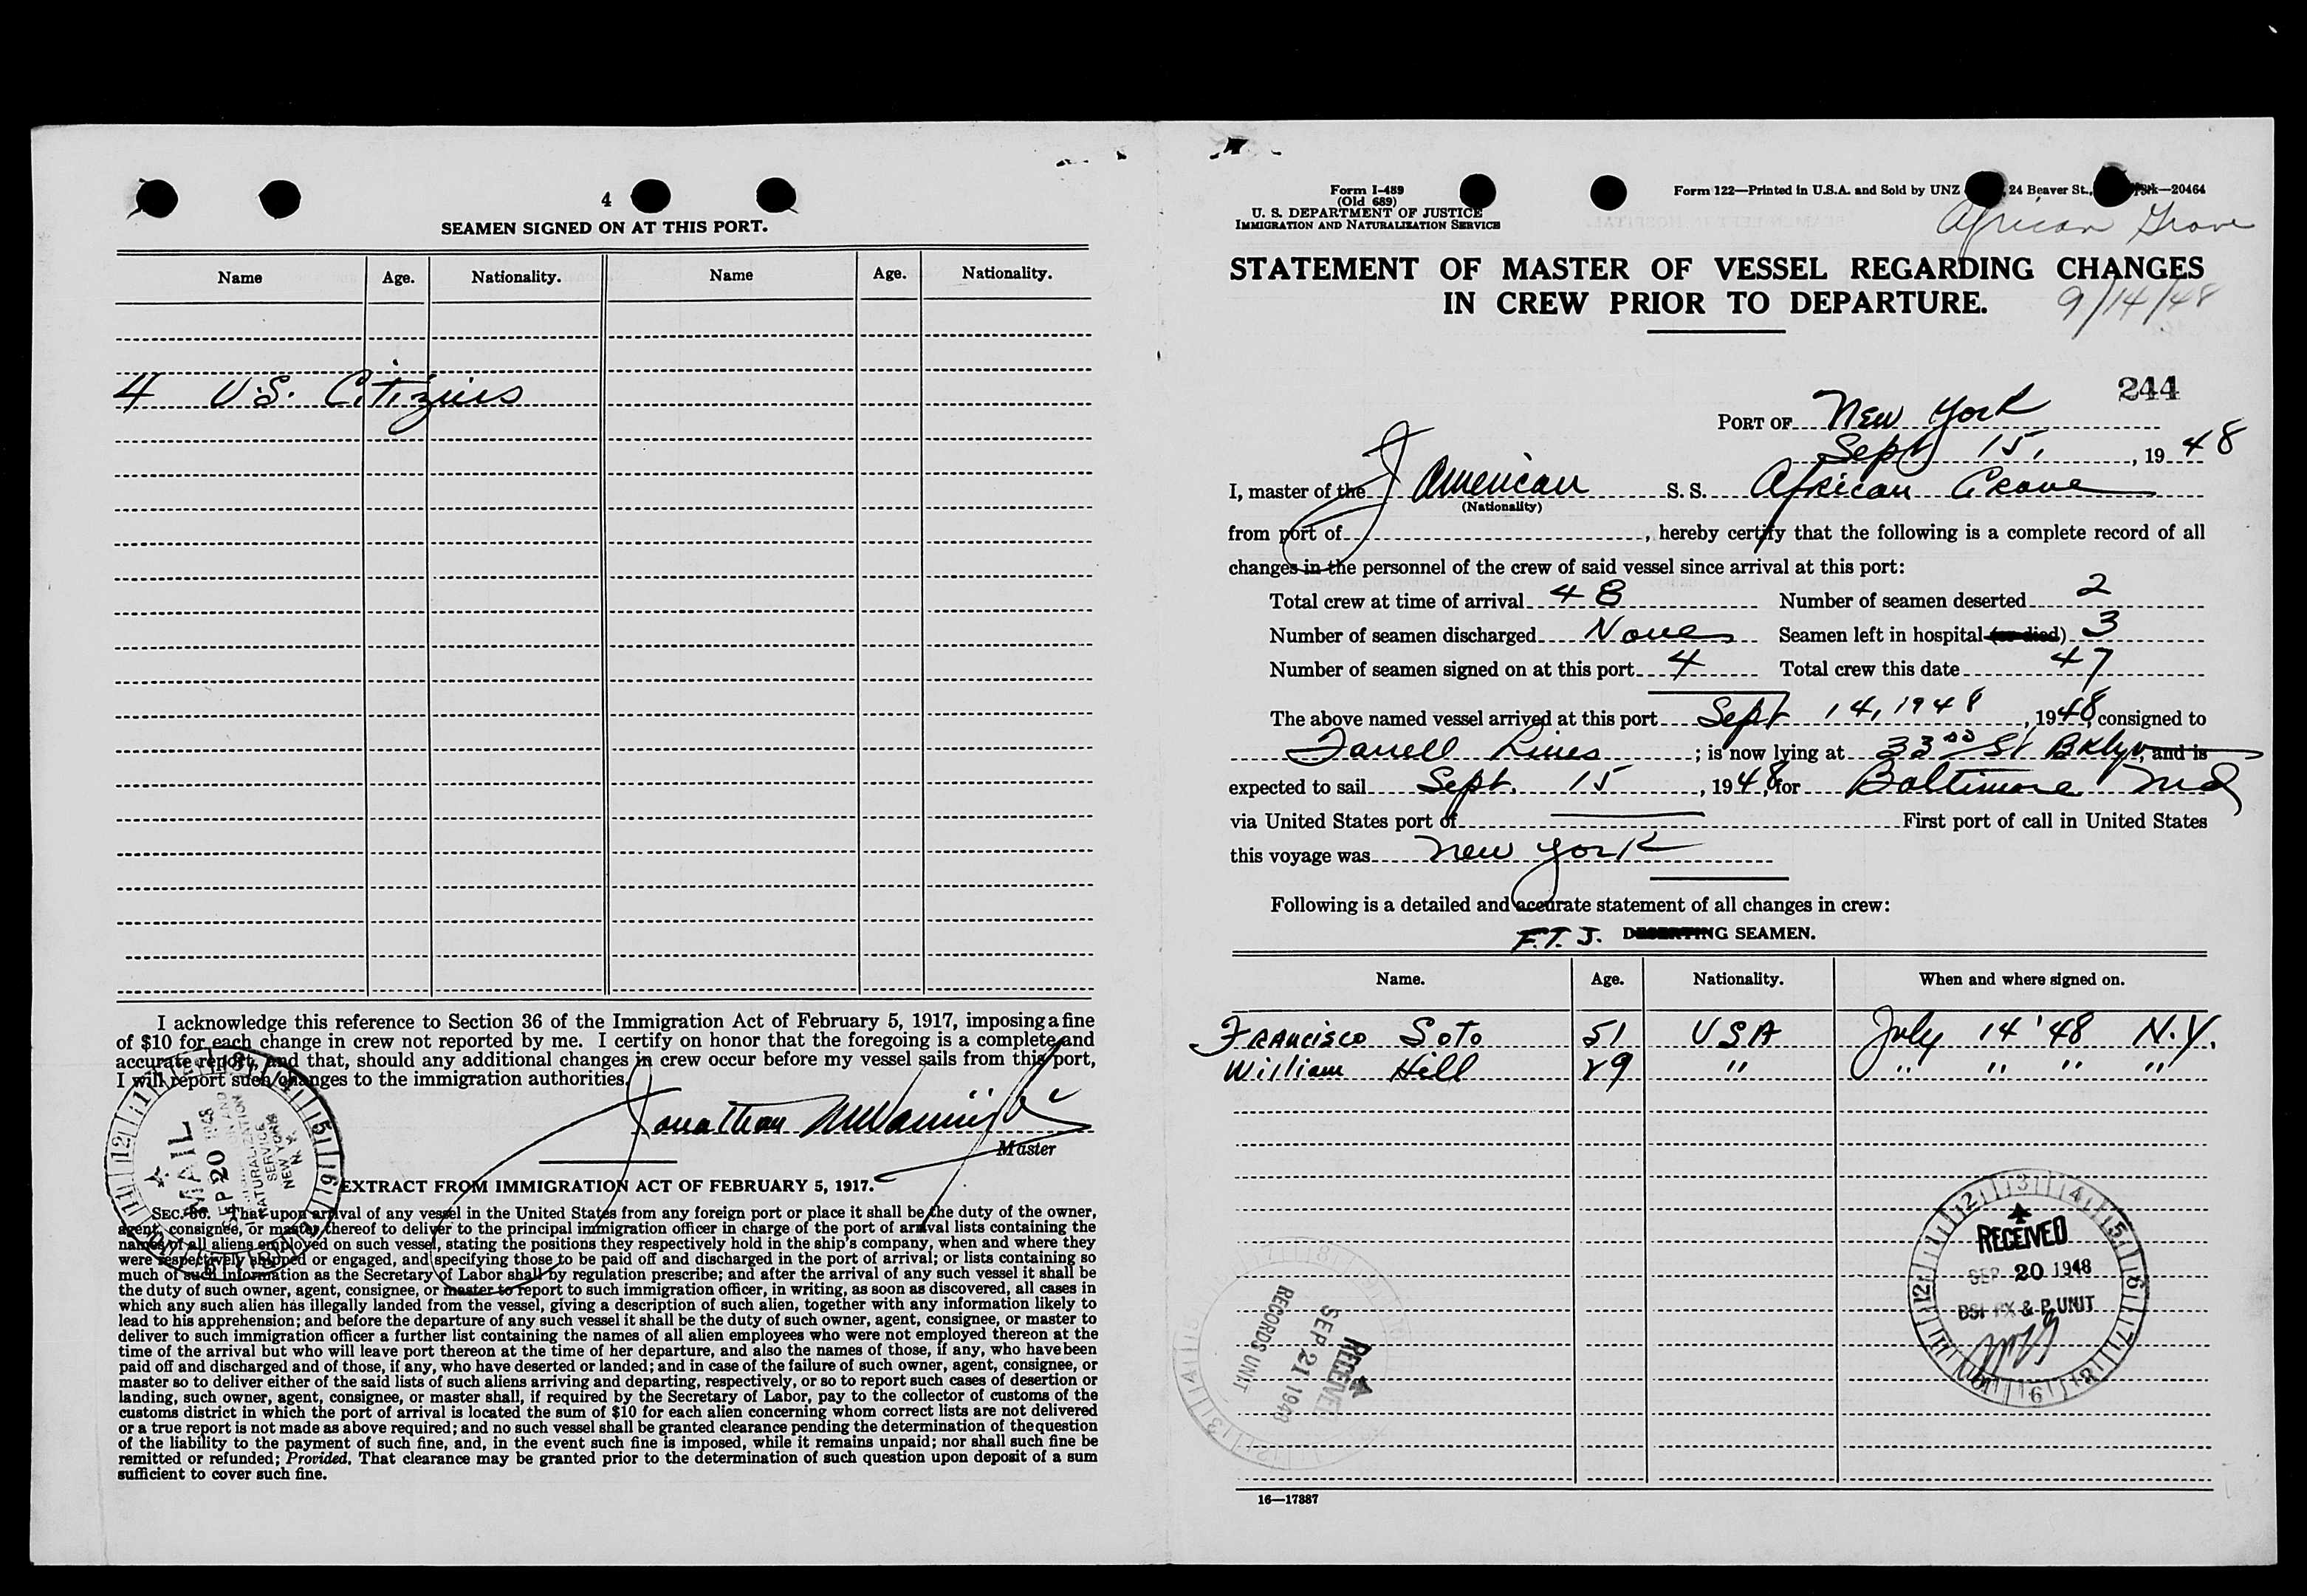 4
SEAMEN SIGNED ON AT THIS PORT.
Name Age. Nationality. Name Age. Nationality.
4 U.S. Citizens
I acknowledge this reference to Section 36 of the Immigration Act of February 5, 1917, imposing a fine
of $10 for each change in crew not reported by me. I certify on honor that the foregoing is a complete and
accurate report, and that, should any additional changes in crew occur before my vessel sails from this port,
I will report such changes to the immigration authorities.
Jonathan
Master
MAIL
SEP 20 1948
NATURALIZATION
SERVICE
NEW YORK
N. Y.
EXTRACT FROM IMMIGRATION ACT OF FEBRUARY 5, 1917.
SEC. 36. That upon arrival of any vessel in the United States from any foreign port or place it shall be the duty of the owner,
agent, consignee, or master thereof to deliver to the principal immigration officer in charge of the port of arrival lists containing the
names of all aliens employed on such vessel, stating the positions they respectively hold in the ship's company, when and where they
were respectively shipped or engaged, and specifying those to be paid off and discharged in the port of arrival; or lists containing so
much of such information as the Secretary of Labor shall by regulation prescribe; and after the arrival of any such vessel it shall be
the duty of such owner, agent, consignee, or master to report to such immigration officer, in writing, as soon as discovered, all cases in
which any such alien has illegally landed from the vessel, giving a description of such alien, together with any information likely to
lead to his apprehension; and before the departure of any such vessel it shall be the duty of such owner, agent, consignee, or master to
deliver to such immigration officer a further list containing the names of all alien employees who were not employed thereon at the
time of the arrival but who will leave port thereon at the time of her departure, and also the names of those, if any, who have been
paid off and discharged and of those, if any, who have deserted or landed; and in case of the failure of such owner, agent, consignee, or
master so to deliver either of the said lists of such aliens arriving and departing, respectively, or so to report such cases of desertion or
landing, such owner, agent, consignee, or master shall, if required by the Secretary of Labor, pay to the collector of customs of the
customs district in which the port of arrival is located the sum of $10 for each alien concerning whom correct lists are not delivered
or a true report is not made as above required; and no such vessel shall be granted clearance pending the determination of the question
of the liability to the payment of such fine, and, in the event such fine is imposed, while it remains unpaid; nor shall such fine be
remitted or refunded; Provided, That clearance may be granted prior to the determination of such question upon deposit of a sum
sufficient to cover such fine.
Form I-489
(Old 689)
U. S. DEPARTMENT OF JUSTICE
IMMIGRATION AND NATURALIZATION SERVICE
Form 122—Printed in U.S.A. and Sold by UNZ 24 Beaver St., —20464
African Grove
STATEMENT OF MASTER OF VESSEL REGARDING CHANGES
IN CREW PRIOR TO DEPARTURE.
9/14/48
244
PORT OF New York
Sept 15, , 19 48
I, master of the American S. S. African Grove
(Nationality)
from port of , hereby certify that the following is a complete record of all
changes in the personnel of the crew of said vessel since arrival at this port:
Total crew at time of arrival 48 Number of seamen deserted 2
Number of seamen discharged None Seamen left in hospital (or died) 3
Number of seamen signed on at this port 4 Total crew this date 47
The above named vessel arrived at this port Sept 14, 1948 , 1948, consigned to
Farrell Lines ; is now lying at 33rd St Bklyn, and is
expected to sail Sept. 15 , 1948, for Baltimore Md
via United States port of First port of call in United States
this voyage was New York
Following is a detailed and accurate statement of all changes in crew:
F.T.J. DESERTING SEAMEN.
Name. Age. Nationality. When and where signed on.
Francisco Soto 51 USA July 14 '48 N.Y.
William Hill 29 " " " " "
RECEIVED
SEP 20 1948
BSI & P UNIT
RECEIVED
SEP 21 1948
RECORDS UNIT
16—17387